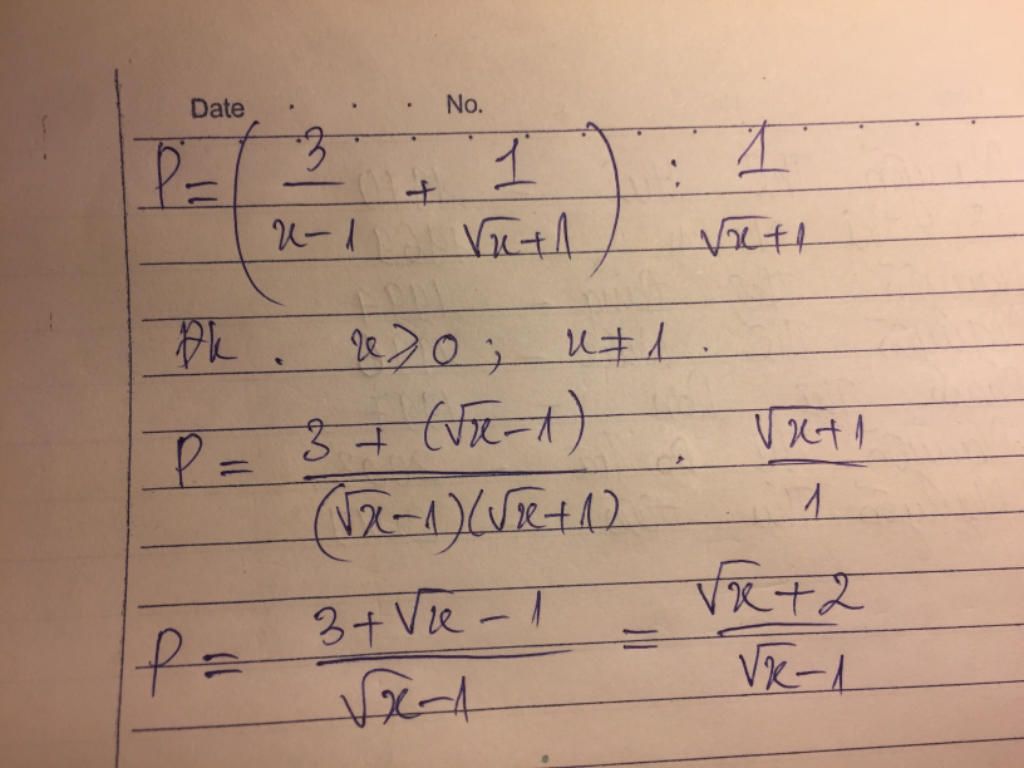 Date . . . No.
P = ( 3/(x-1) + 1/(√x+1) ) : 1/(√x+1)
Đk . x ⩾ 0 ; x ≠ 1 .
P = (3 + (√x-1))/((√x-1)(√x+1)) . (√x+1)/1
P = (3+√x-1)/(√x-1) = (√x+2)/(√x-1)